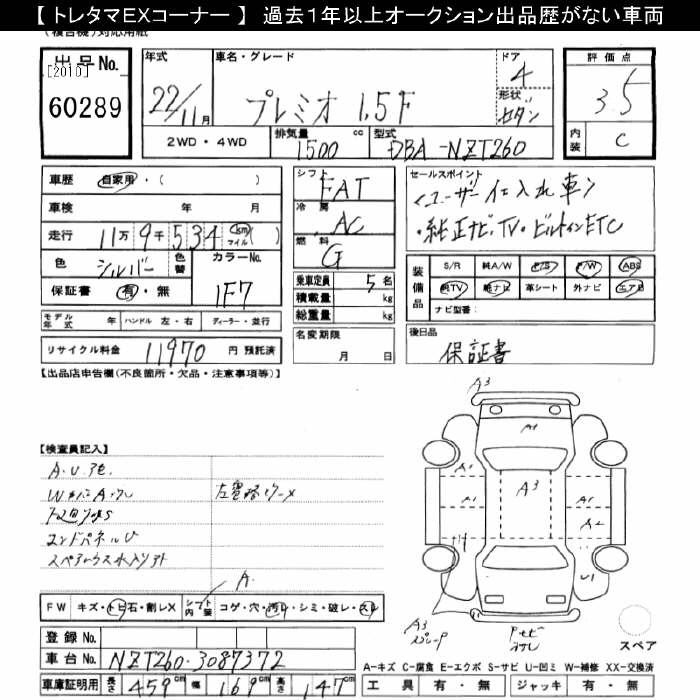 【 トレタマEXコーナー 】 過去1年以上オークション出品歴がない車両
(複合機)対応用紙
出品No. [2010]
60289
年式 22/11月
車名・グレード プレミオ 1.5F
ドア 4
形状 セダン
2WD・4WD
排気量 1500 cc
型式 DBA-NZT260
評価点 3.5
内装 C
車歴 自家用・( )
車検 年 月
走行 11万9千534 km マイル ( )
色 シルバー 色替
カラーNo. 1F7
保証書 有・無
モデル年式 年 ハンドル 左・右 ディーラー・並行
リサイクル料金 11970 円 預託済
シフト FAT
冷房 AC
燃料 G
乗車定員 5名
積載量 kg
総重量 kg
名変期限
月 日
セールスポイント
<ユーザー仕入れ車>
・純正ナビ、TV・ビルトインETC
装備品
S/R 純A/W P/S P/W ABS
純TV 純ナビ 革シート 外ナビ エアB
ナビ型番:
後日品
保証書
【出品店申告欄(不良箇所・欠品・注意事項等)】
【検査員記入】
A.U.
エンドパネルU
A
FW キズ・トビ石・割レX シフト内装 コゲ・穴・汚レ・シミ・破レ・スレ
登録No.
車台No. NZT260-3087372
車庫証明用 長さ 459 幅 169 高さ 147 cm
A3
A1
A1
A1
A3
A1
A1
A2
U1
A3
スペア
A-キズ C-腐食 E-エクボ S-サビ U-凹ミ W-補修 XX-交換済
工具 有・無 ジャッキ 有・無